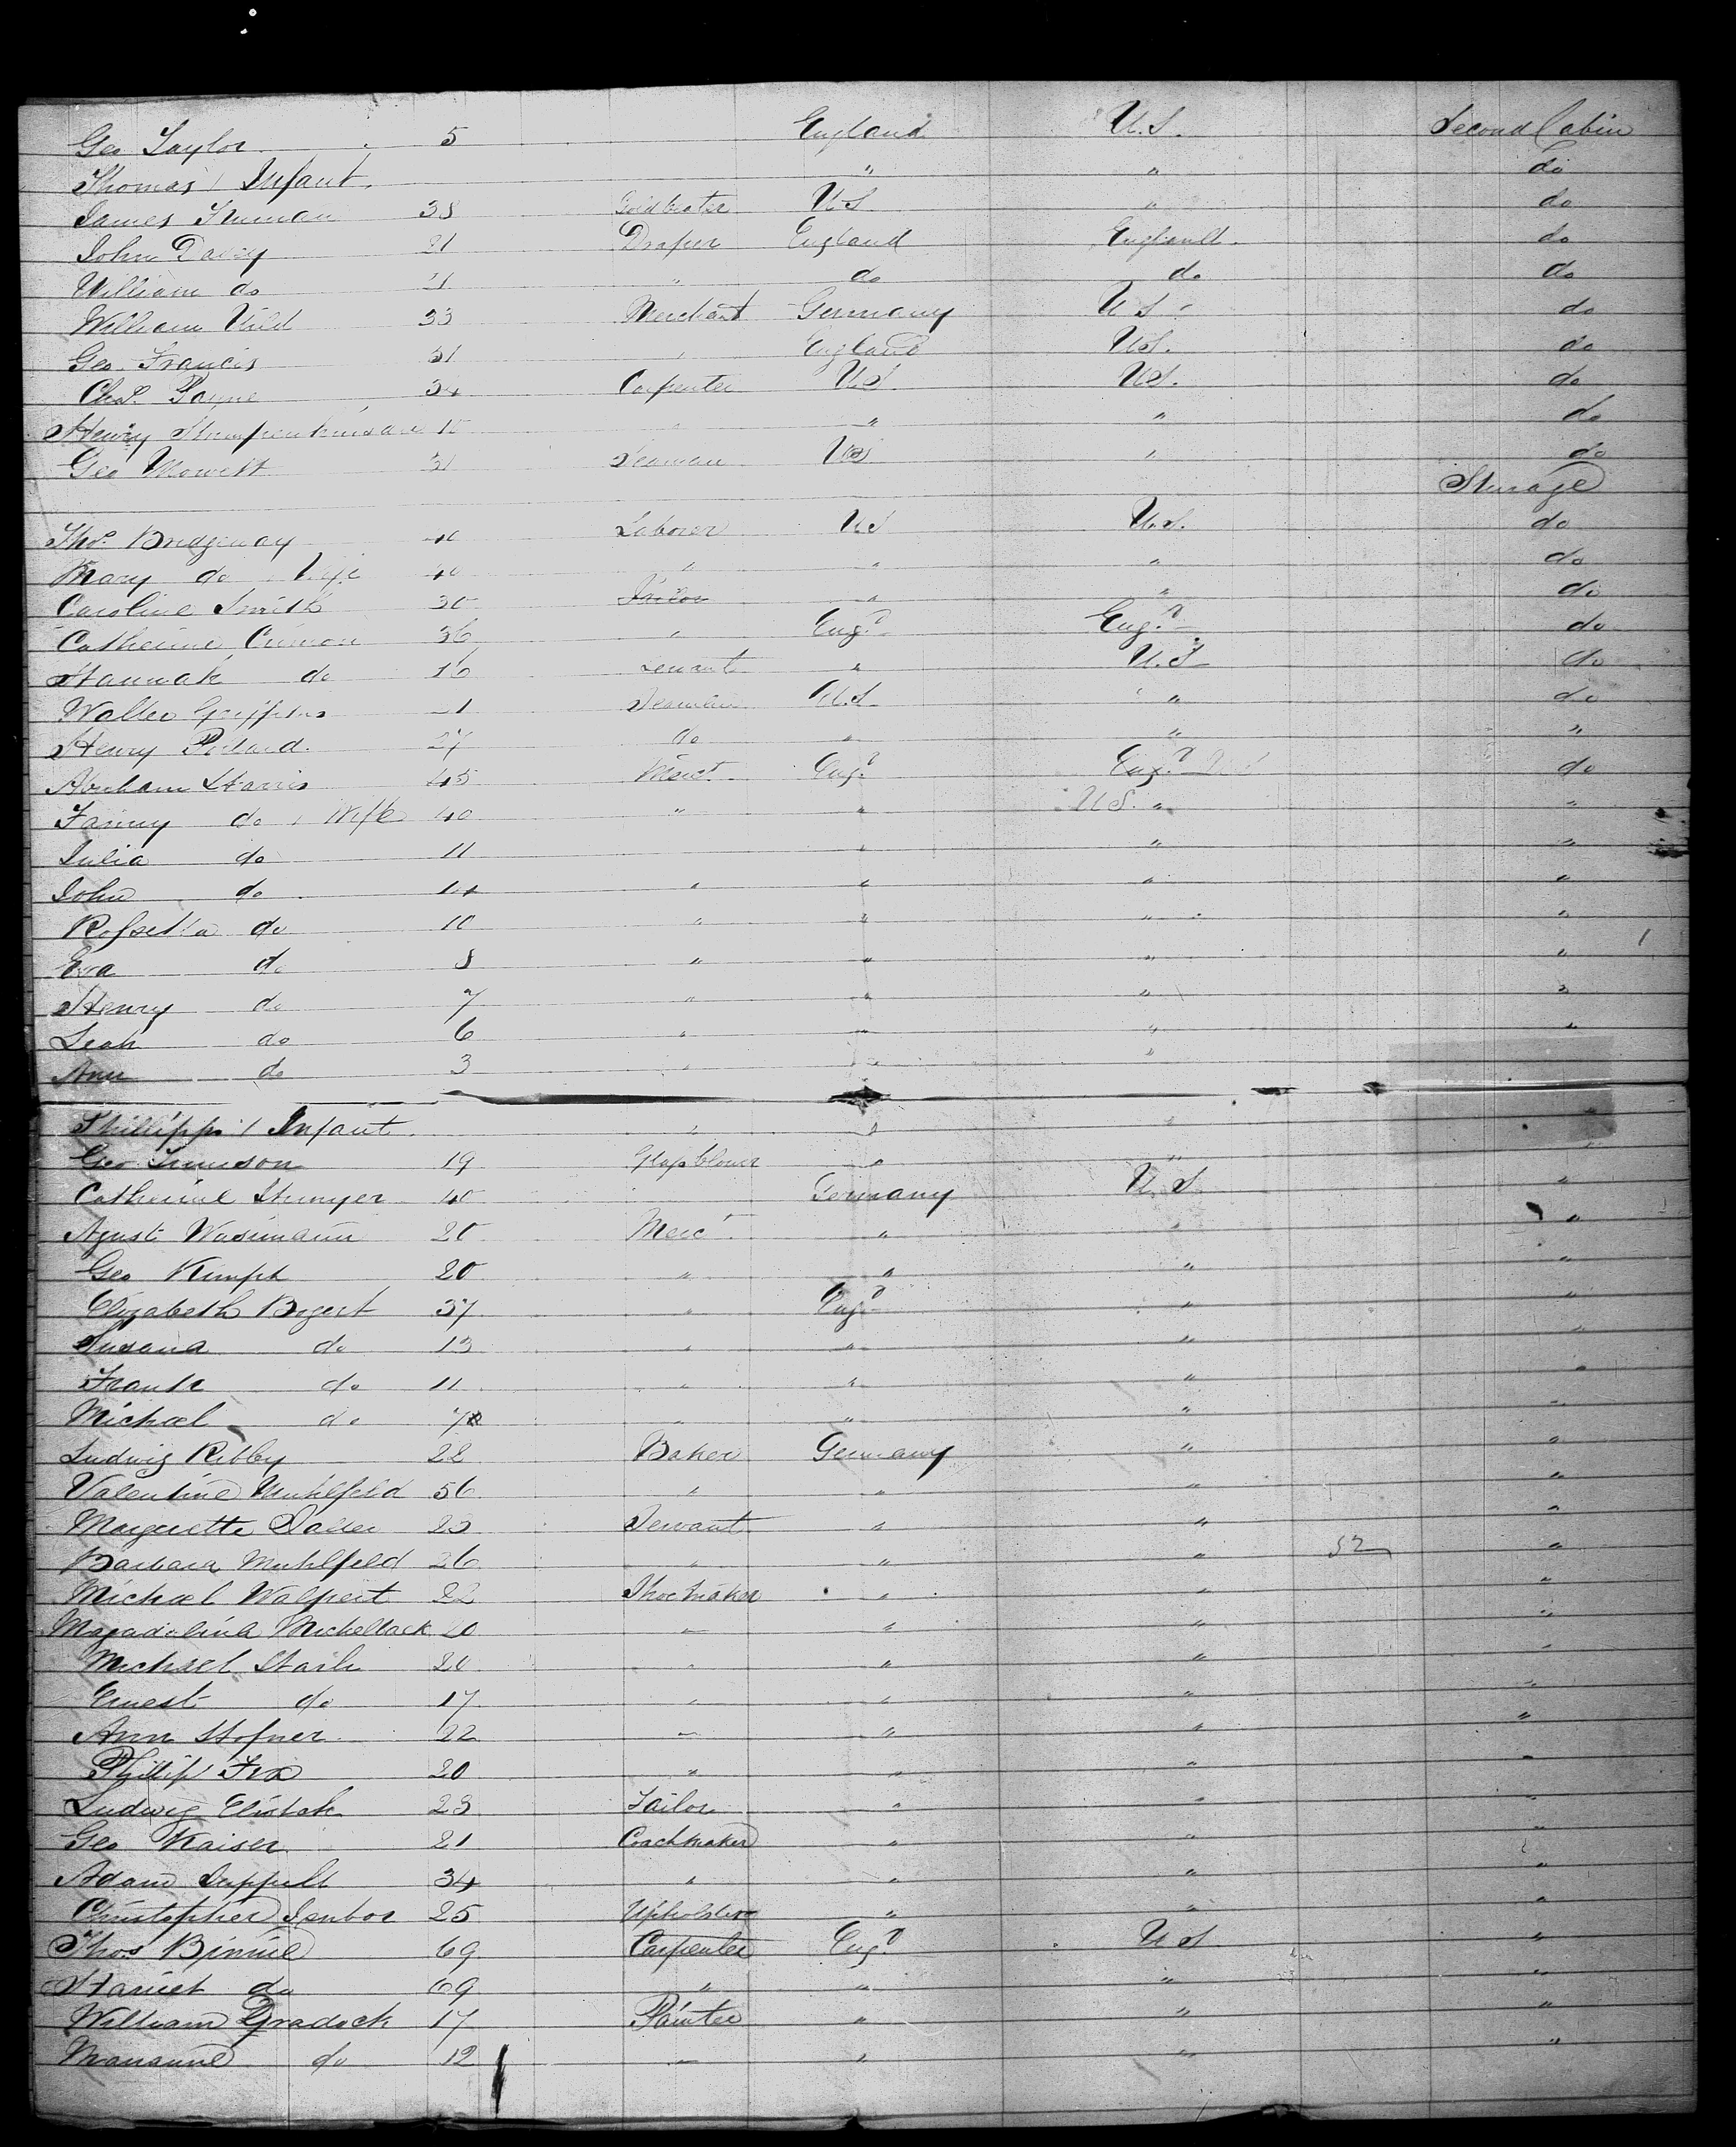 Geo Taylor 5 England U.S. Second Cabin
Thomas / Infant " " do
James Truman 38 Goldbeater U S " do
John Davey 21 Draper England England do
William do 21 " do do do
William Uild 33 Merchant Germany U S do
Geo Francis 31 " England U.S. do
Chas. Payne 34 Carpenter U.S U.S. do
Henry 10 " " " do
Geo Mowett 31 Seaman U S " do
Sterage
Thos. Bridgeway 40 Laborer U.S U.S. do
Mary do Wife 40 " " " do
Caroline Smith 30 Tailor " " do
Catherine 36 " Engd Engd do
Hannah do 16 Servant " U.S do
Walter Griffiths Seaman U.S " do
Henry Pollard 27 do " " "
Abraham Harris 45 Merct Engd Engd do
Fanny do , Wife 40 " " U S. " "
Julia do 11 " " "
John do 14 " " " "
Rosetta do 10 " " " "
Eva do 8 " " " "
Henry do 7 " " " "
Leah do 6 " " " "
Ann do 3 " " "
Phillipp / Infant " " " "
Geo 19 Glassblower " " "
Catherine Stunyer 40 Germany U.S. "
Agust Wasimann 20 Merct. " " "
Geo Kimph 20 " " " "
Elizabeth Bogert 37 " Engd " "
Susana do 13 " " " "
Frank do 11 " " " "
Michael do 7 " " " "
Ludwig Ribby 22 Baker Germany " "
Valentine Muhlfeld 56 " " " "
Margurette 23 Servant " " "
Barbara Muhlfeld 26 " " " 52 "
Michael Walpert 22 Shoemaker " " "
Magadalina Michellack 20 " " " "
Michael 20 " " " "
Ernest do 17 " " " "
Ann Hofner 22 " " " "
Phillip Fox 20 " " " "
Ludwig 23 Tailor " " "
Geo Kaiser 21 Coachmaker " " "
Adam 34 " " " "
Christopher 25 Upholster " " "
Thos Binnie 69 Carpenter Engd U S "
Harriet do 69 " " " "
William Gradock 17 Painter " " "
Marianne do 12 " " " "